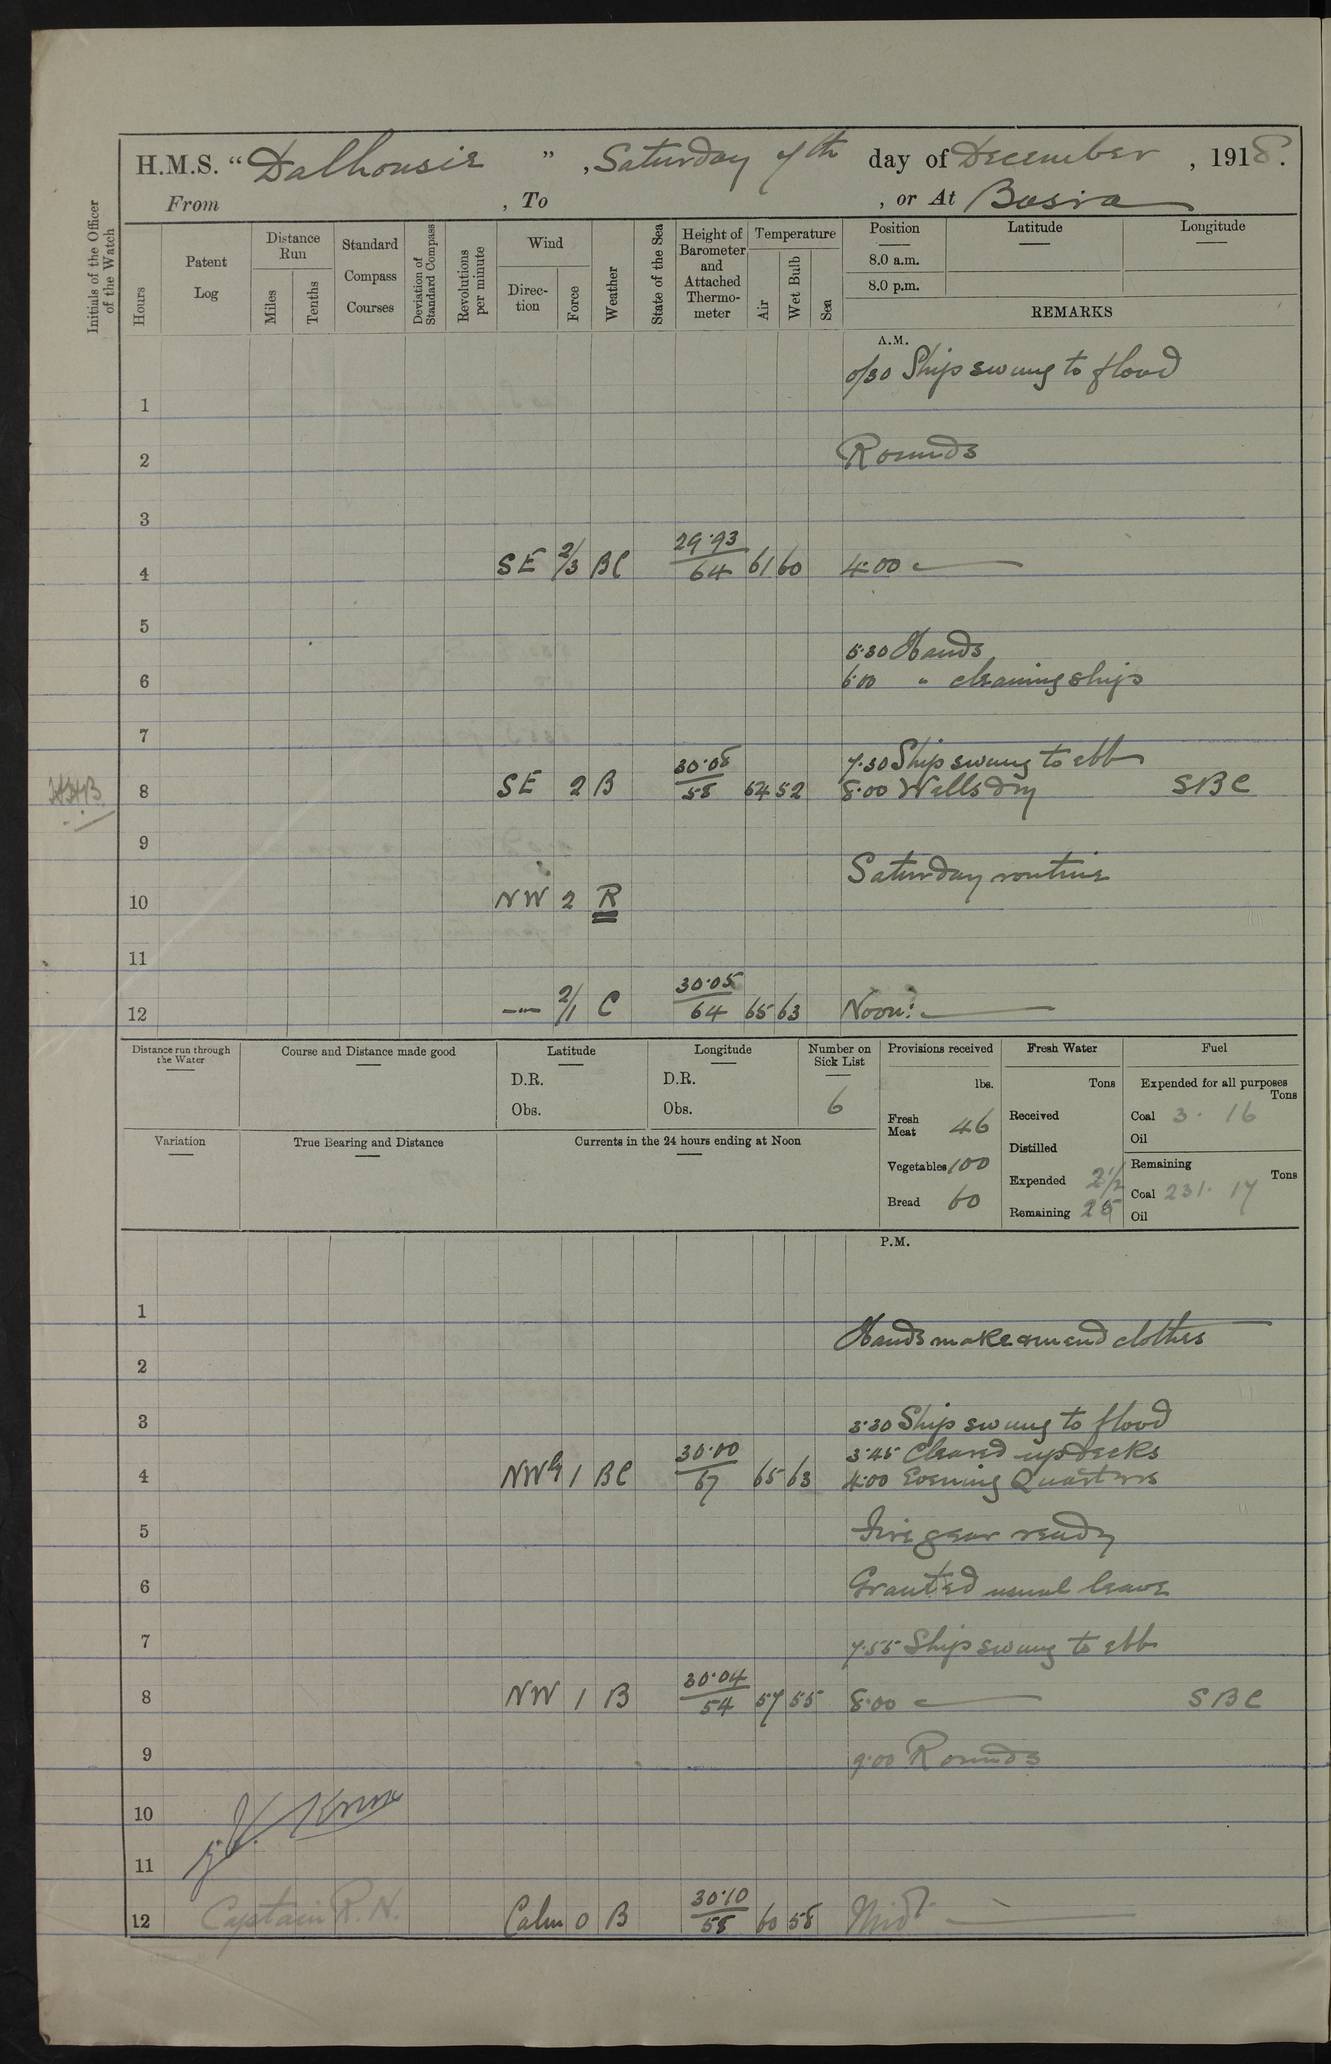 H.M.S. “Dalhousie ” , Saturday 7th day of December , 1918.
From , To , or At Basra
Initials of the Officer of the Watch
Hours
Patent Log
Distance Run
Miles
Tenths
Standard Compass Courses
Deviation of Standard Compass
Revolutions per minute
Wind
Direction
Force
Weather
State of the Sea
Height of Barometer and Attached Thermometer
Temperature
Air
Wet Bulb
Sea
Position
8.0 a.m.
8.0 p.m.
Latitude
Longitude
REMARKS
A.M.
0/30 Ship swung to flood
1
2 Rounds
3
4 SE 2/3 BC 29.93/64 61 60 4.00
5
5.30 Hands
6 6.00 " cleaning ship
7
7.30 Ship swung to ebb
HHB 8 SE 2 B 30.08/58 54 52 8.00 Wells dry SBC
9
Saturday routine
10 NW 2 R
11
12 —"— 2/1 C 30.05/64 65 63 Noon:
Distance run through the Water
Course and Distance made good
Latitude
D.R.
Obs.
Longitude
D.R.
Obs.
Number on Sick List
6
Provisions received
lbs.
Fresh Meat 46
Vegetables 100
Bread 60
Fresh Water
Tons
Received
Distilled
Expended 2½
Remaining 25
Fuel
Expended for all purposes
Tons
Coal 3. 16
Oil
Remaining
Tons
Coal 231. 17
Oil
Variation
True Bearing and Distance
Currents in the 24 hours ending at Noon
P.M.
1
Hands make & mend clothes
2
3 3.30 Ship swung to flood
3.45 Cleared up decks
4 NW 1 BC 30.00/67 65 63 4.00 Evening Quarters
5 Fire gear ready
6 Granted usual leave
7 7.55 Ship swung to ebb
8 NW 1 B 30.04/54 57 55 8.00 SBC
9 9.00 Rounds
10
Knox
11
Captain R.N.
12 Calm 0 B 30.10/58 60 58 Midt.